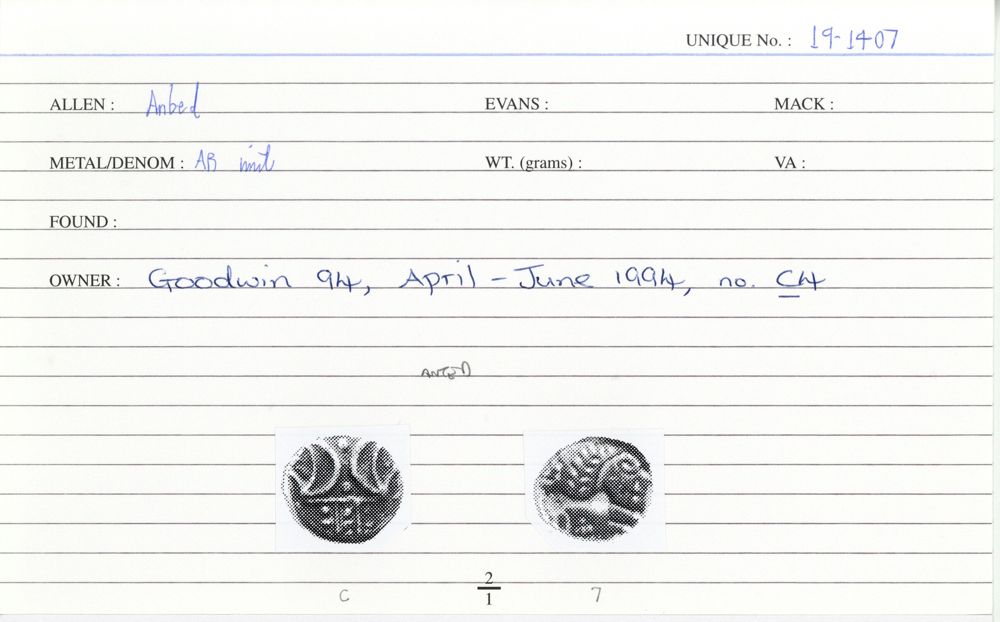 UNIQUE No. : 19-1407
ALLEN : Anbed EVANS : MACK :
METAL/DENOM : AR unit WT. (grams) : VA :
FOUND :
OWNER : Goodwin 94, April - June 1994, no. C4
ANTED
2
C 1 7